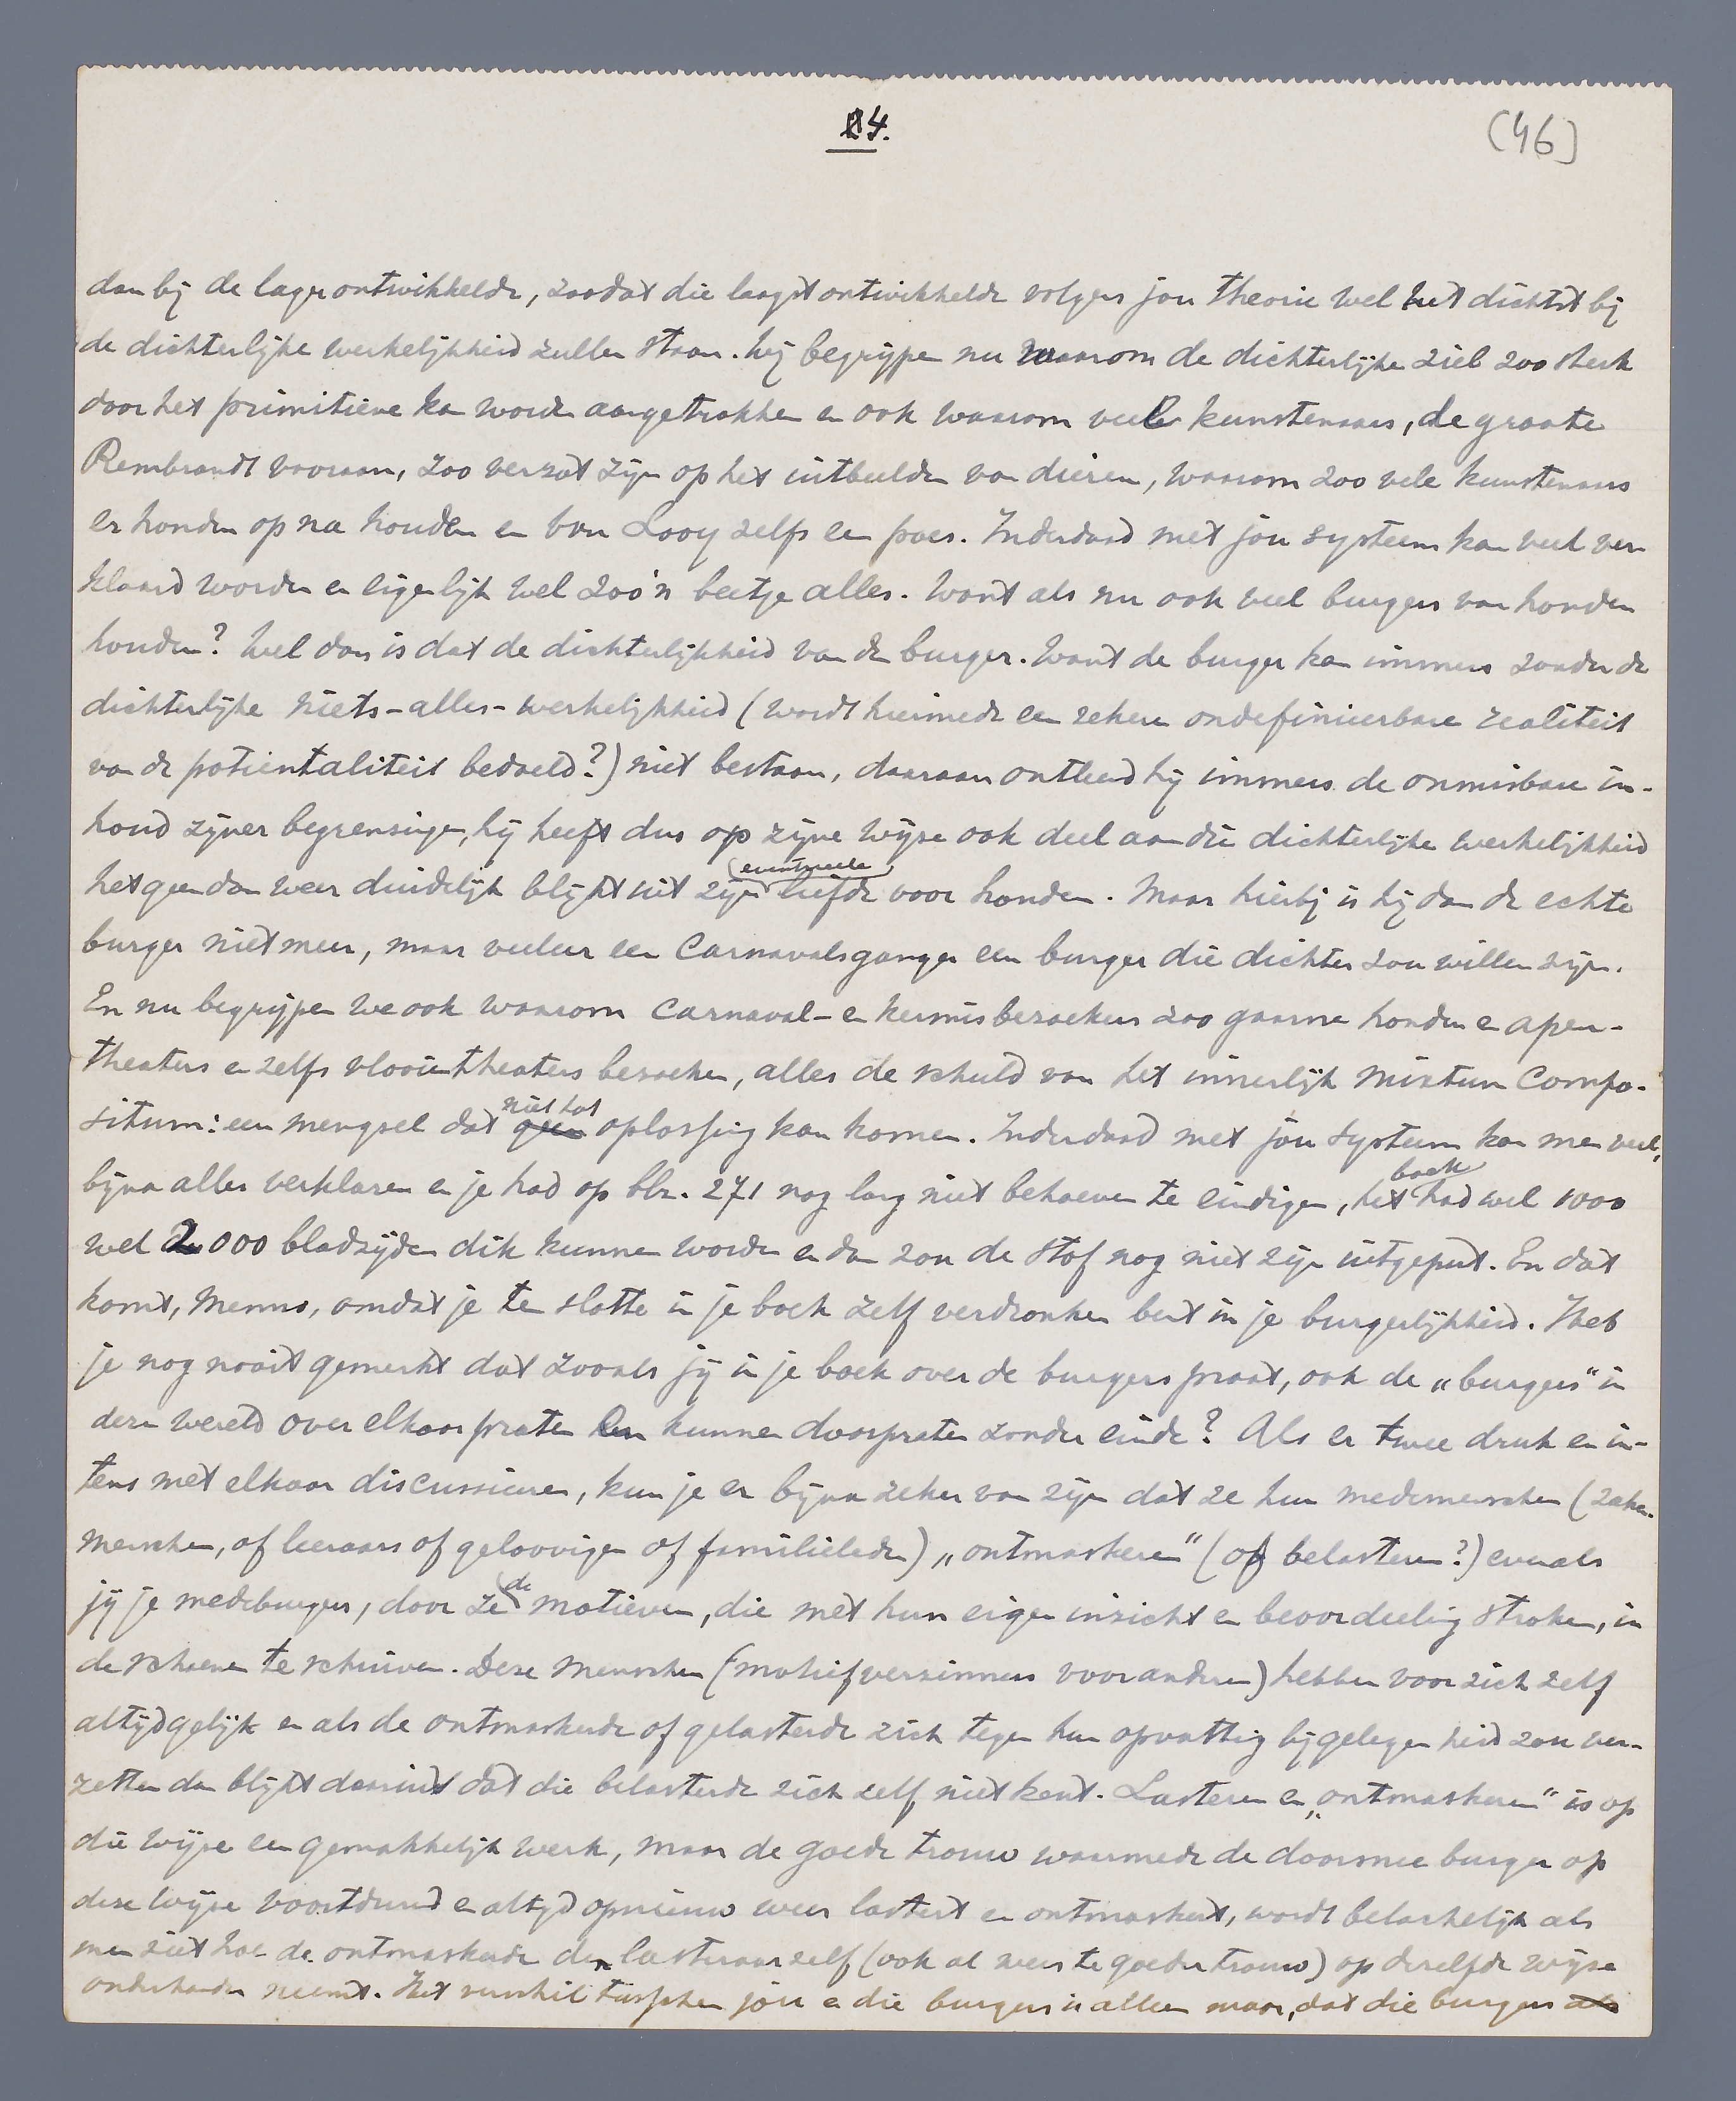 4.
(46)
dan bij de lager ontwikkelde, zoodat die laagst ontwikkelde volgens jou theorie wel het dichtst bij
de dichterlijke werkelijkheid zullen staan. Wij begrijpen nu waarom de dichterlijke ziel zoo sterk
door het primitieve kan worden aangetrokken en ook waarom veele kunstenaars, de groote
Rembrandt vooraan, zoo verzot zijn op het uitbeelden van dieren, waarom zoo vele kunstenaars
er honden op na houden en van Looy zelfs een poes. Inderdaad met jou systeem kan veel ver
klaard worden en eigenlijk wel zoo'n beetje alles. Want als nu ook veel burgers van honden
houden? Wel dan is dat de dichterlijkheid van den burger. Want de burger kan immers zonder de
dichterlijke niets-alles-werkelijkheid (wordt hiermede een zekere ondefinieerbare realiteit
van de potientaliteit bedoeld?) niet bestaan, daaraan ontleend hij immers de onmisbare in-
houd zijner begrenzingen, hij heeft dus op zijne wijze ook deel aan die dichterlijke werkelijkheid
hetgeen dan weer duidelijk blijkt uit zijn (eventueele) liefde voor honden. Maar hierbij is hij dan de echte
burger niet meer, maar veeleer een Carnavalsganger een burger die dichter zou willen zijn.
En nu begrijpen we ook waarom Carnaval- en kermisbezoekers zoo gaarne honden en apen-
theaters en zelfs vlooientheaters bezoeken, alles de schuld van het innerlijk Mixtum Compo-
situm: een mengsel dat geen niet tot oplossing kan komen. Inderdaad met jou systeem kan men veel,
bijna alles verklaren en je had op blz. 271 nog lang niet behoeven te eindigen, het boek had wel 1000
wel 2000 bladzijden dik kunnen worden en dan zou de stof nog niet zijn uitgeput. En dat
komt, Menno, omdat je ten slotte in je boek zelf verdronken bent in je burgerlijkheid. Heb
je nog nooit gemerkt dat zooals jij in je boek over de burgers praat, ook de „burgers“ in
deze wereld over elkaar praten en kunnen doorpraten zonder einde? Als er twee druk en in-
tens met elkaar discussieeren, kun je er bijna zeker van zijn dat ze hun medemenschen (zaken-
menschen, of leeraars of geloovigen of familieleden) „ontmaskeren“ (of belasteren?) evenals
jij je medeburgers, door ze de motieven, die met hun eigen inzicht en beoordeeling stroken, in
de schoenen te schuiven. Deze menschen (motiefverzinners voor anderen) hebben voor zich zelf
altijd gelijk en als de ontmaskerde of gelasterde zich tegen hun opvatting bij gelegenheid zou ver-
zetten dan blijkt daaruit dat die belasterde zich zelf niet kent. Lasteren en „ontmaskeren“ is op
die wijze een gemakkelijk werk, maar de goede trouw waarmede de doorsnee burger op
deze wijze voortdurend en altijd opnieuw weer lastert en ontmaskert, wordt belachelijk als
men ziet hoe de ontmaskerde den lasteraar zelf (ook al weer te goeder trouw) op dezelfde wijze
onderhanden neemt. Het verschil tusschen jou en die burgers is alleen maar, dat die burgers als